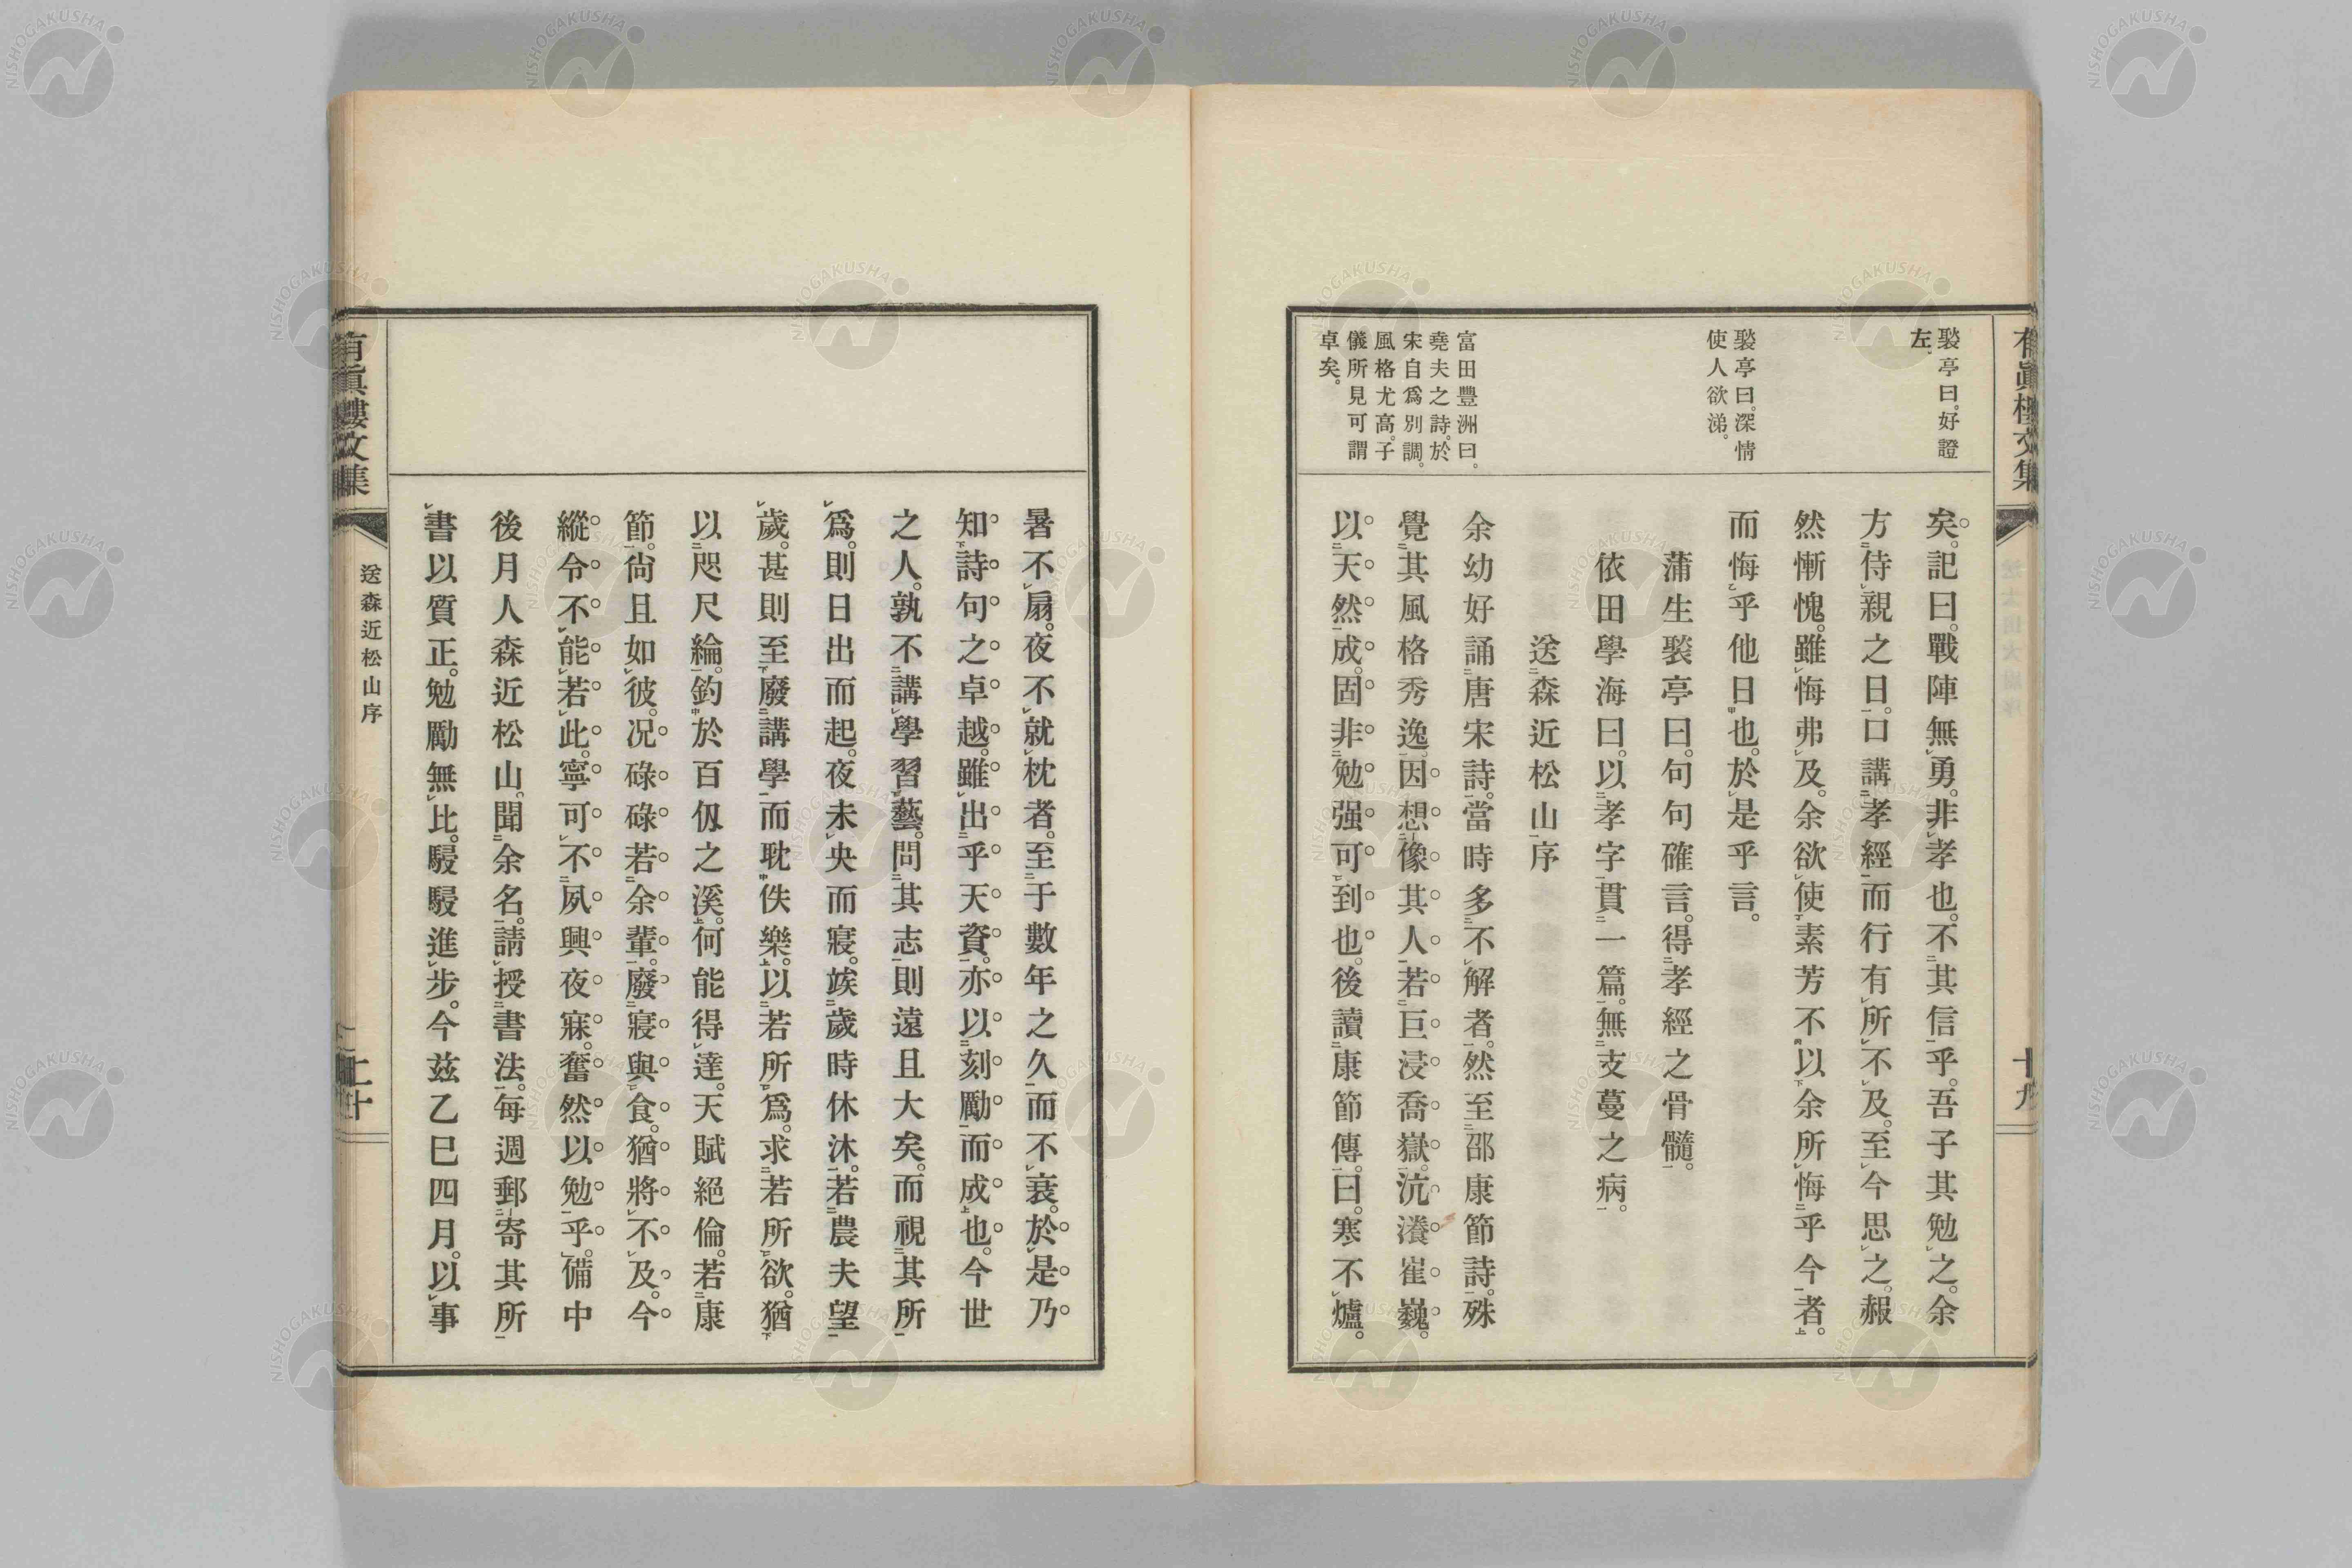 有眞樓文集
十九
褧亭曰。好證
左。
褧亭曰。深情
使人欲涕。
富田豐洲曰。
堯夫之詩。於
宋自爲別調。
風格尤高。子
儀所見可謂
卓矣。
矣。記曰。戰陣無勇。非孝也。不其信乎。吾子其勉之。余
方侍親之日。口講孝經而行有所不及。至今思之。赧
然慚愧。雖悔弗及。余欲使素芳不以余所悔乎今者。
而悔乎他日也。於是乎言。
蒲生褧亭曰。句句確言。得孝經之骨髓。
依田學海曰。以孝字貫一篇。無支蔓之病。
送森近松山序
余幼好誦唐宋詩。當時多不解者。然至邵康節詩。殊
覺其風格秀逸。因想像其人。若巨浸喬嶽。沆瀁崔巍。
以天然成。固非勉强可到也。後讀康節傳。曰。寒不爐。
暑不扇。夜不就枕者。至于數年之久而不衰。於是乃
知詩句之卓越。雖出乎天資。亦以刻勵而成也。今世
之人。孰不講學習藝。問其志則遠且大矣。而視其所
爲。則日出而起。夜未央而寢。竢歲時休沐。若農夫望
歲。甚則至廢講學而耽佚樂。以若所爲。求若所欲。猶
以咫尺綸。釣於百仭之溪。何能得達。天賦絕倫。若康
節。尙且如彼。况碌碌若余輩。廢寢與食。猶將不及。今
縱令不能若此。寧可不夙興夜寐。奮然以勉乎。備中
後月人森近松山。聞余名。請授書法。每週郵寄其所
書以質正。勉勵無比。駸駸進步。今玆乙巳四月。以事
有眞樓文集
送森近松山序
二十
NISHOGAKUSHA